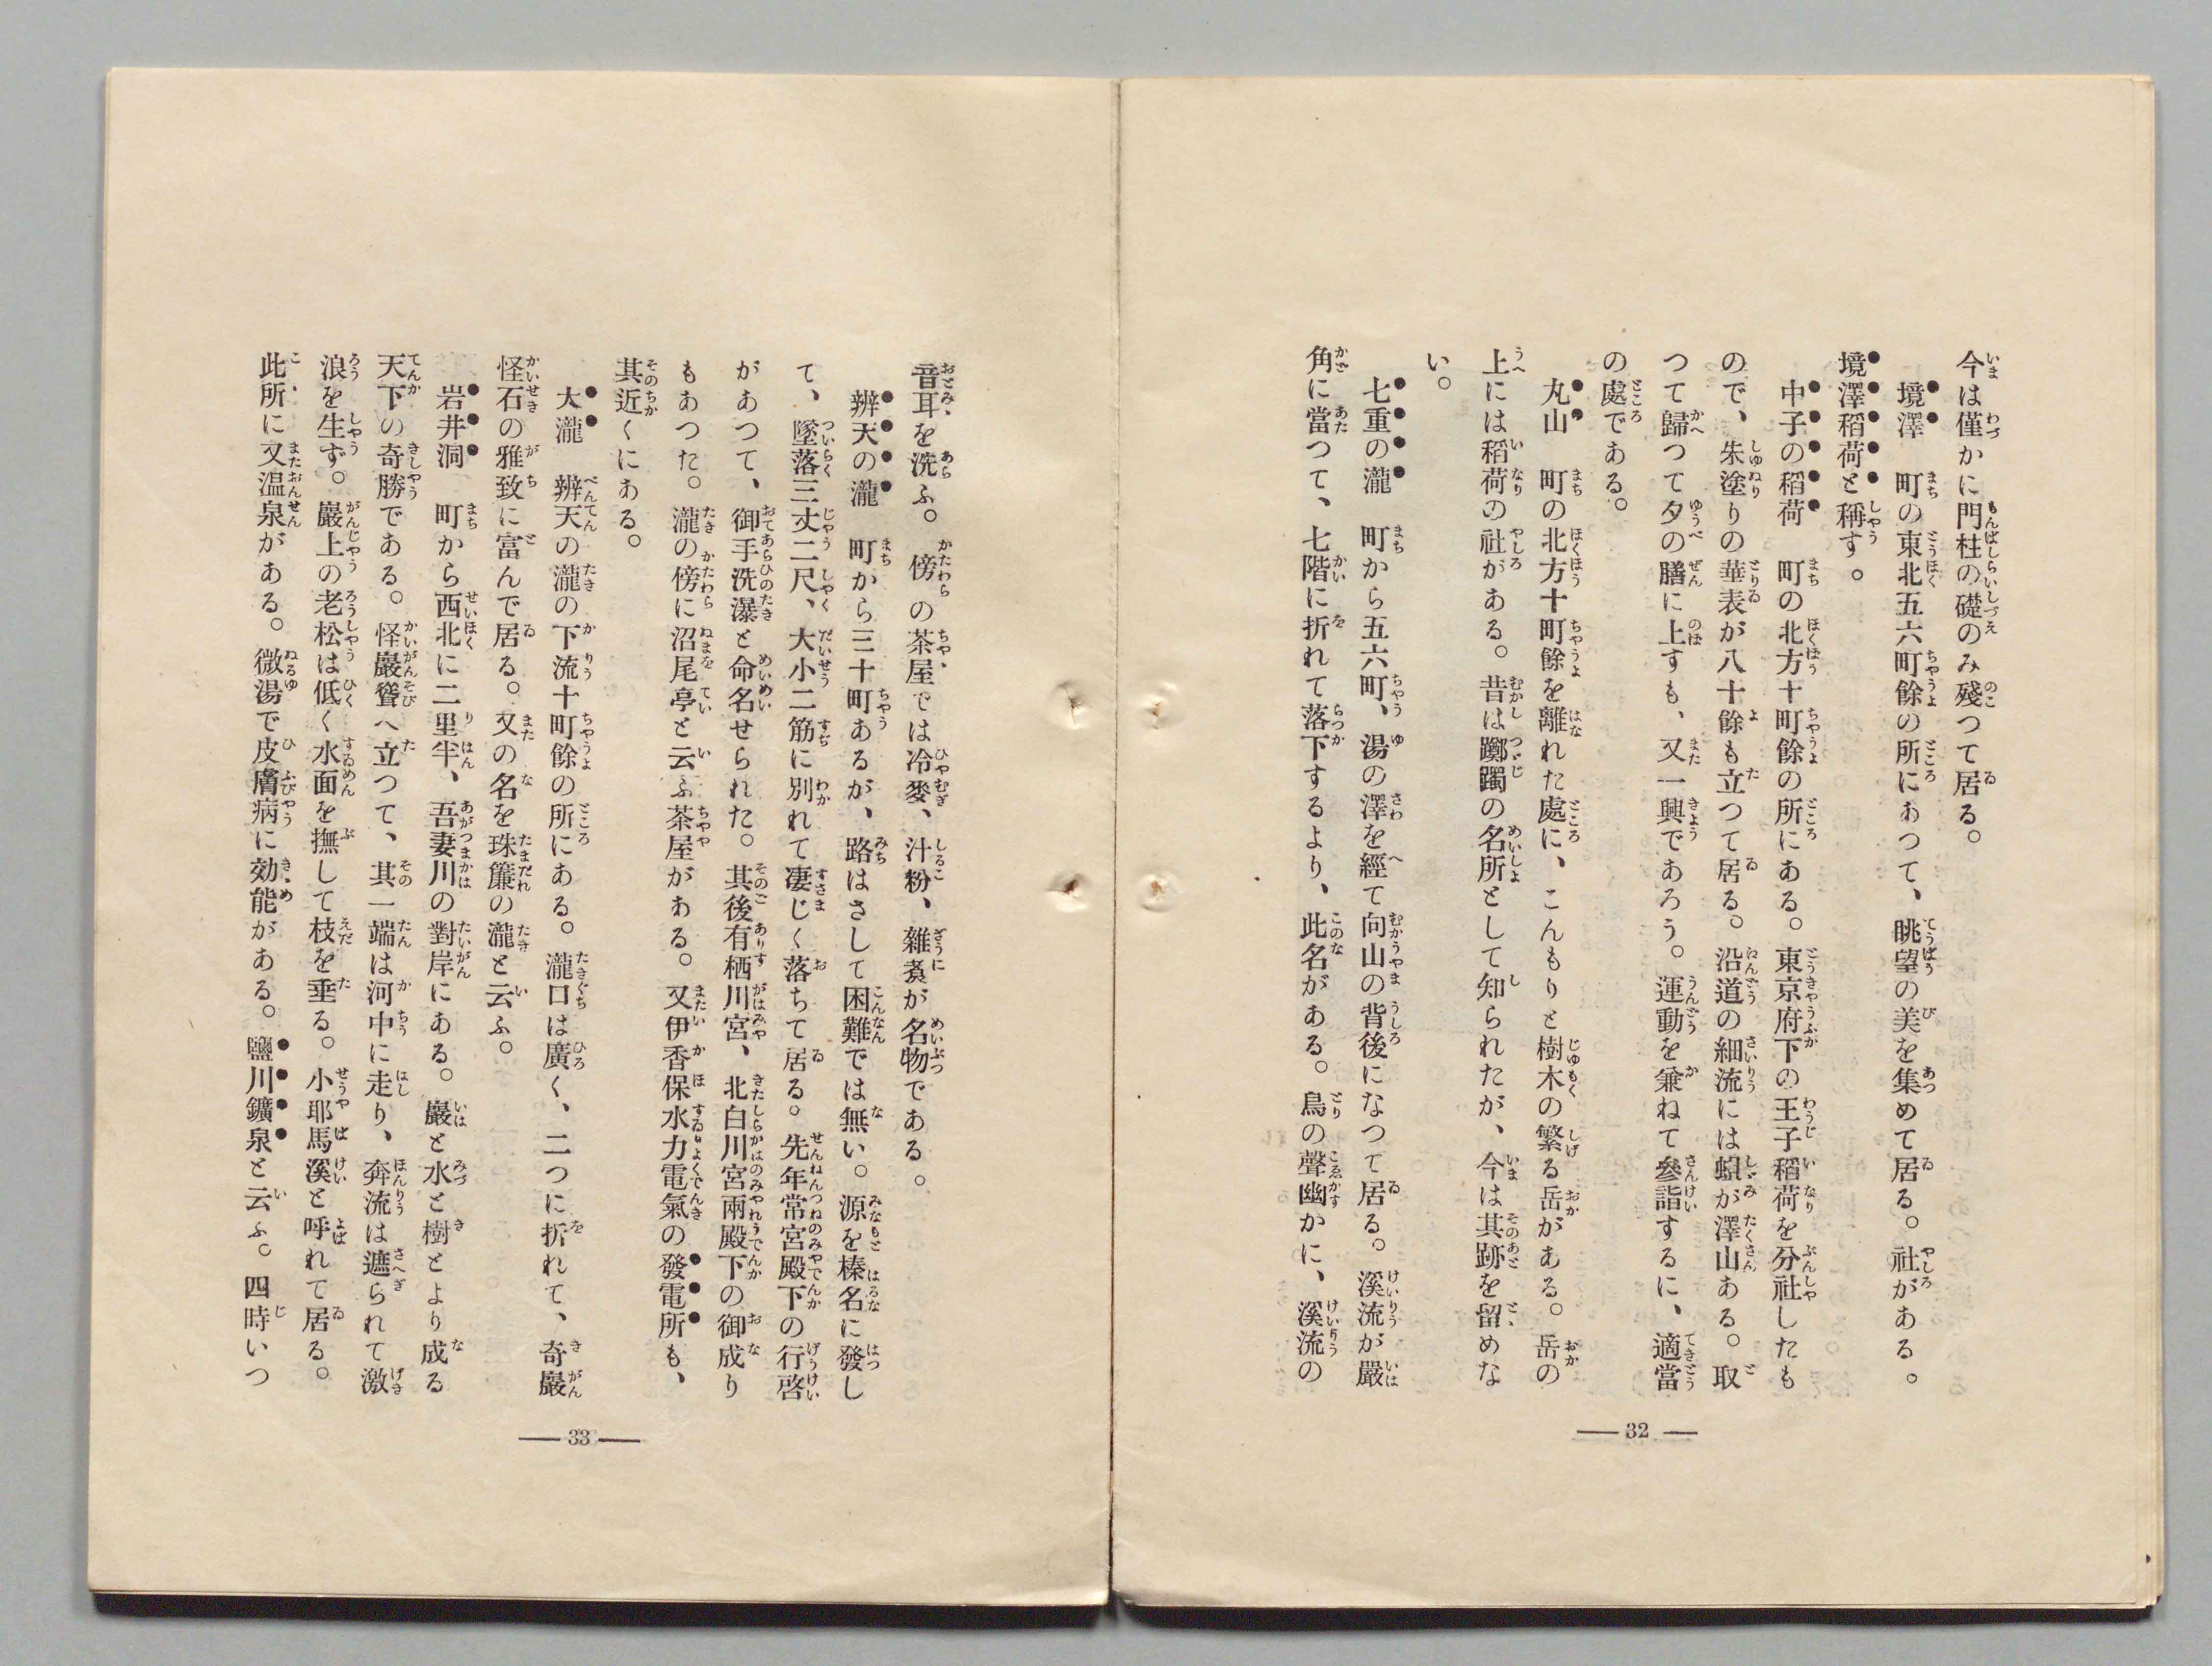 今は僅かに門柱の礎のみ殘つて居る。
境澤　町の東北五六町餘の所にあつて、眺望の美を集めて居る。社がある。
境澤稻荷と稱す。
中子の稻荷　町の北方十町餘の所にある。東京府下の王子稻荷を分社したも
ので、朱塗りの華表が八十餘も立つて居る。沿道の細流には蜆が澤山ある。取
つて歸つて夕の膳に上すも、又一興であろう。運動を兼ねて參詣するに、適當
の處である。
丸山　町の北方十町餘を離れた處に、こんもりと樹木の繁る岳がある。岳の
上には稻荷の社がある。昔は躑躅の名所として知られたが、今は其跡を留めな
い。
七重の瀧　町から五六町、湯の澤を經て向山の背後になつて居る。溪流が嚴
角に當つて、七階に折れて落下するより、此名がある。鳥の聲幽かに、溪流の
32
音耳を洗ふ。傍の茶屋では冷麥、汁粉、雜煮が名物である。
辨天の瀧　町から三十町あるが、路はさして困難では無い。源を榛名に發し
て、墜落三丈二尺、大小二筋に別れて凄じく落ちて居る。先年常宮殿下の行啓
があつて、御手洗瀑と命名せられた。其後有栖川宮、北白川宮兩殿下の御成り
もあつた。瀧の傍に沼尾亭と云ふ茶屋がある。又伊香保水力電氣の發電所も、
其近くにある。
大瀧　辨天の瀧の下流十町餘の所にある。瀧口は廣く、二つに折れて、奇巖
怪石の雅致に富んで居る。又の名を珠簾の瀧と云ふ。
岩井洞　町から西北に二里半、吾妻川の對岸にある。巖と水と樹とより成る
天下の奇勝である。怪巖聳へ立つて、其一端は河中に走り、奔流は遮られて激
浪を生ず。巖上の老松は低く水面を撫して枝を垂る。小耶馬溪と呼れて居る。
此所に又温泉がある。微湯で皮膚病に効能がある。鹽川鑛泉と云ふ。四時いつ
33